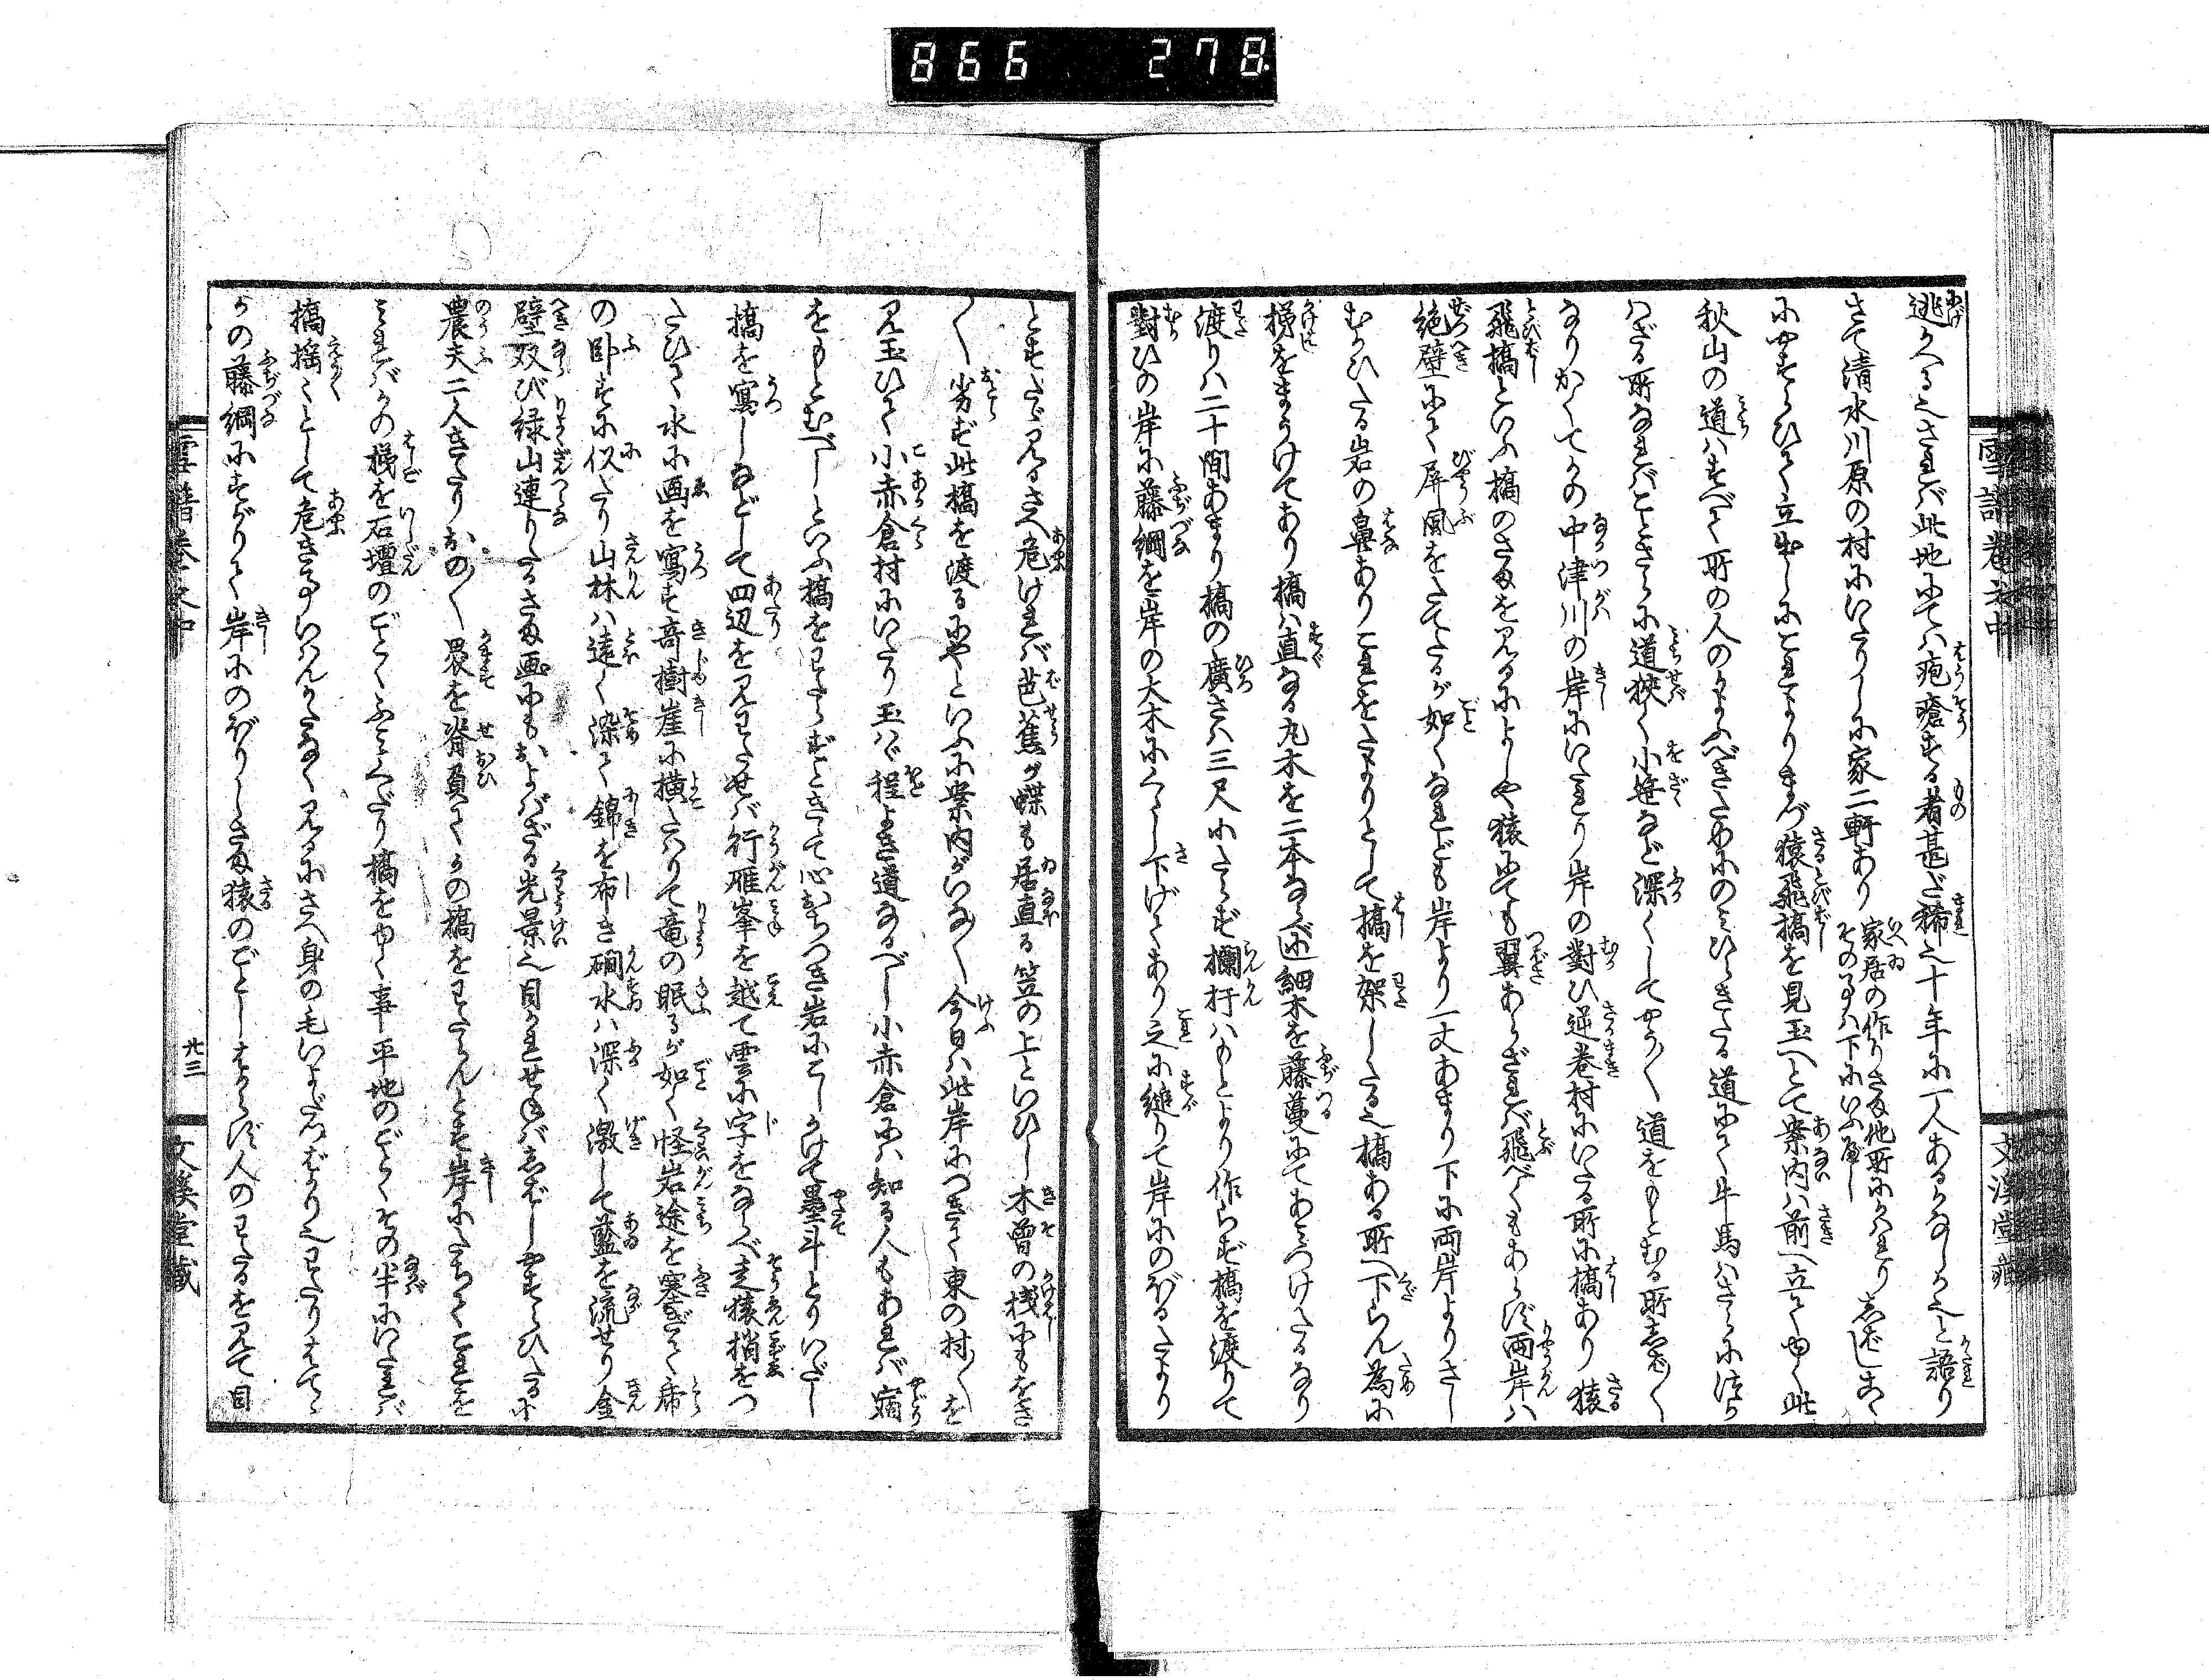 866 278
雪譜巻之中
逃かへる也さればこ此地にては疱瘡する者甚だ稀也十年に一人あるかなしか也と語り
さて清水川原の村にいたりしに家二軒あり 家居の作りさま他所にかはれりそのさまは下にいふべし しばしこゝ
にやすらひて立出しにこれよりまづ猿飛橋を見玉へとて案内は前へ立てゆく此
秋山の道はすべて所の人のかよふべきためにのみひらきたる道にて牛馬はさらに渉ら
はざる所なればことさらに道狭く小笹など深くしてやう〱道をもとむる所しば〱
なりかくてかの中津川の岸にいたれり岸の對ひ逆巻村にいたる所に橋あり猿
飛橋といふ橋のさまを見るによしや猿にても翼あらざれば飛べくもあらず両岸は
絶壁にて屏風をたてたるが如くなれども岸より一丈あまり下に両岸よりさし
むかひたる岩の鼻ありこれをたよりとして橋を架したる也橋ある所へ下らん為に
梯をまうけてあり橋は直なる丸木を二本ならべ細木を藤蔓にてあみつけたるなり
渡りは二十間あまり橋の廣さは三尺にたらず欄杆はもとより作らず橋を渡りて
對ひの岸に藤綱を岸の大木にくゝし下げてあり之に縋りて岸にのぼるたより
とすたゞ見るさへ危ければ芭蕉が蝶も居直る笠の上といひし木曾の桟にもをさ
〱劣ず此橋を渡るにやといふに案内がいな〱今日は此岸につきて東の村〱を
見玉ひて小赤倉村にいたり玉はゞ程よき道なるべし小赤倉には知る人もあれば宿
をもとむべしといふ橋をわたらずときゝて心おちつき岩にこしかけて墨斗とりいだし
橋を寫しなどして四辺を見わたせば行雁峯を越て雲に字をならべ走猿梢をつ
たひて水に画を寫す奇樹崖に横たはりて竜の眠るが如く怪岩途を塞ぎて虎
の卧すに似たり山林は遠く染て錦を布き礀水は深く激して藍を流せり金
壁双び緑山連りたるさま画にもおよばざる光景也目かれせねばしばしやすらひたるに
農夫二人きたりおの〱畏を脊負てかの橋をわたらんとす岸にたちてこれを
みればかの梯を石壇のごとくふみくだり橋をゆく事平地のごとくその半にいたれば
橋揺〱として危き事いはんかたなく見るにさへ身の毛いよだつばかり也わたりはてゝ
かの藤綱にすがりて岸にのぼりしさま猿のごとしはからず人のわたるを見て目
雪譜巻之中
廿三
文溪堂蔵
文溪堂蔵